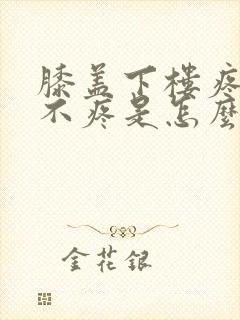 膝盖下楼疼
不疼是怎麼
金花銀